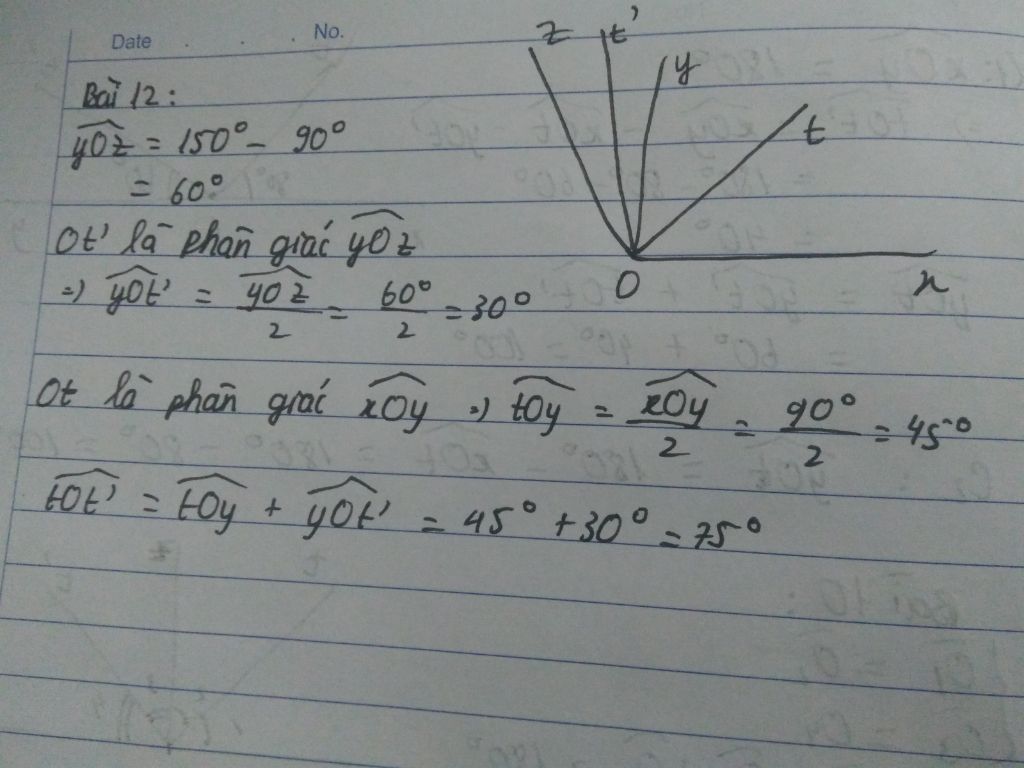 Date . . . No.
z t' y
t
Bài 12:
yOz = 150° - 90°
= 60°
Ot' là phân giác yOz
O x
=) yOt' = yOz/2 = 60°/2 = 30°
Ot là phân giác xOy =) tOy = xOy/2 = 90°/2 = 45°
tOt' = tOy + yOt' = 45° + 30° = 75°